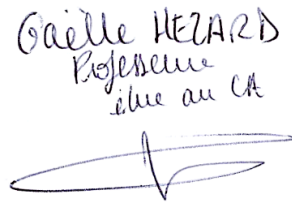 Gaëlle HEZARD
Professeure
élue au CA